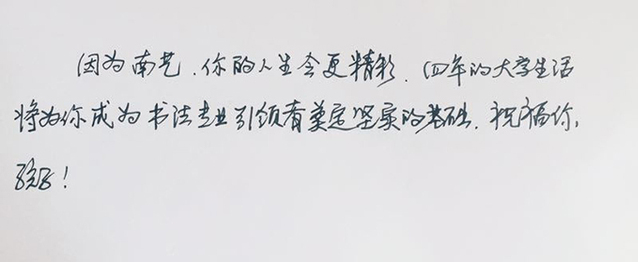 因为南艺,你的人生会更精彩,四年的大学生活
将为你成为书法专业引领者奠定坚实的基础,祝福你,
孩子!